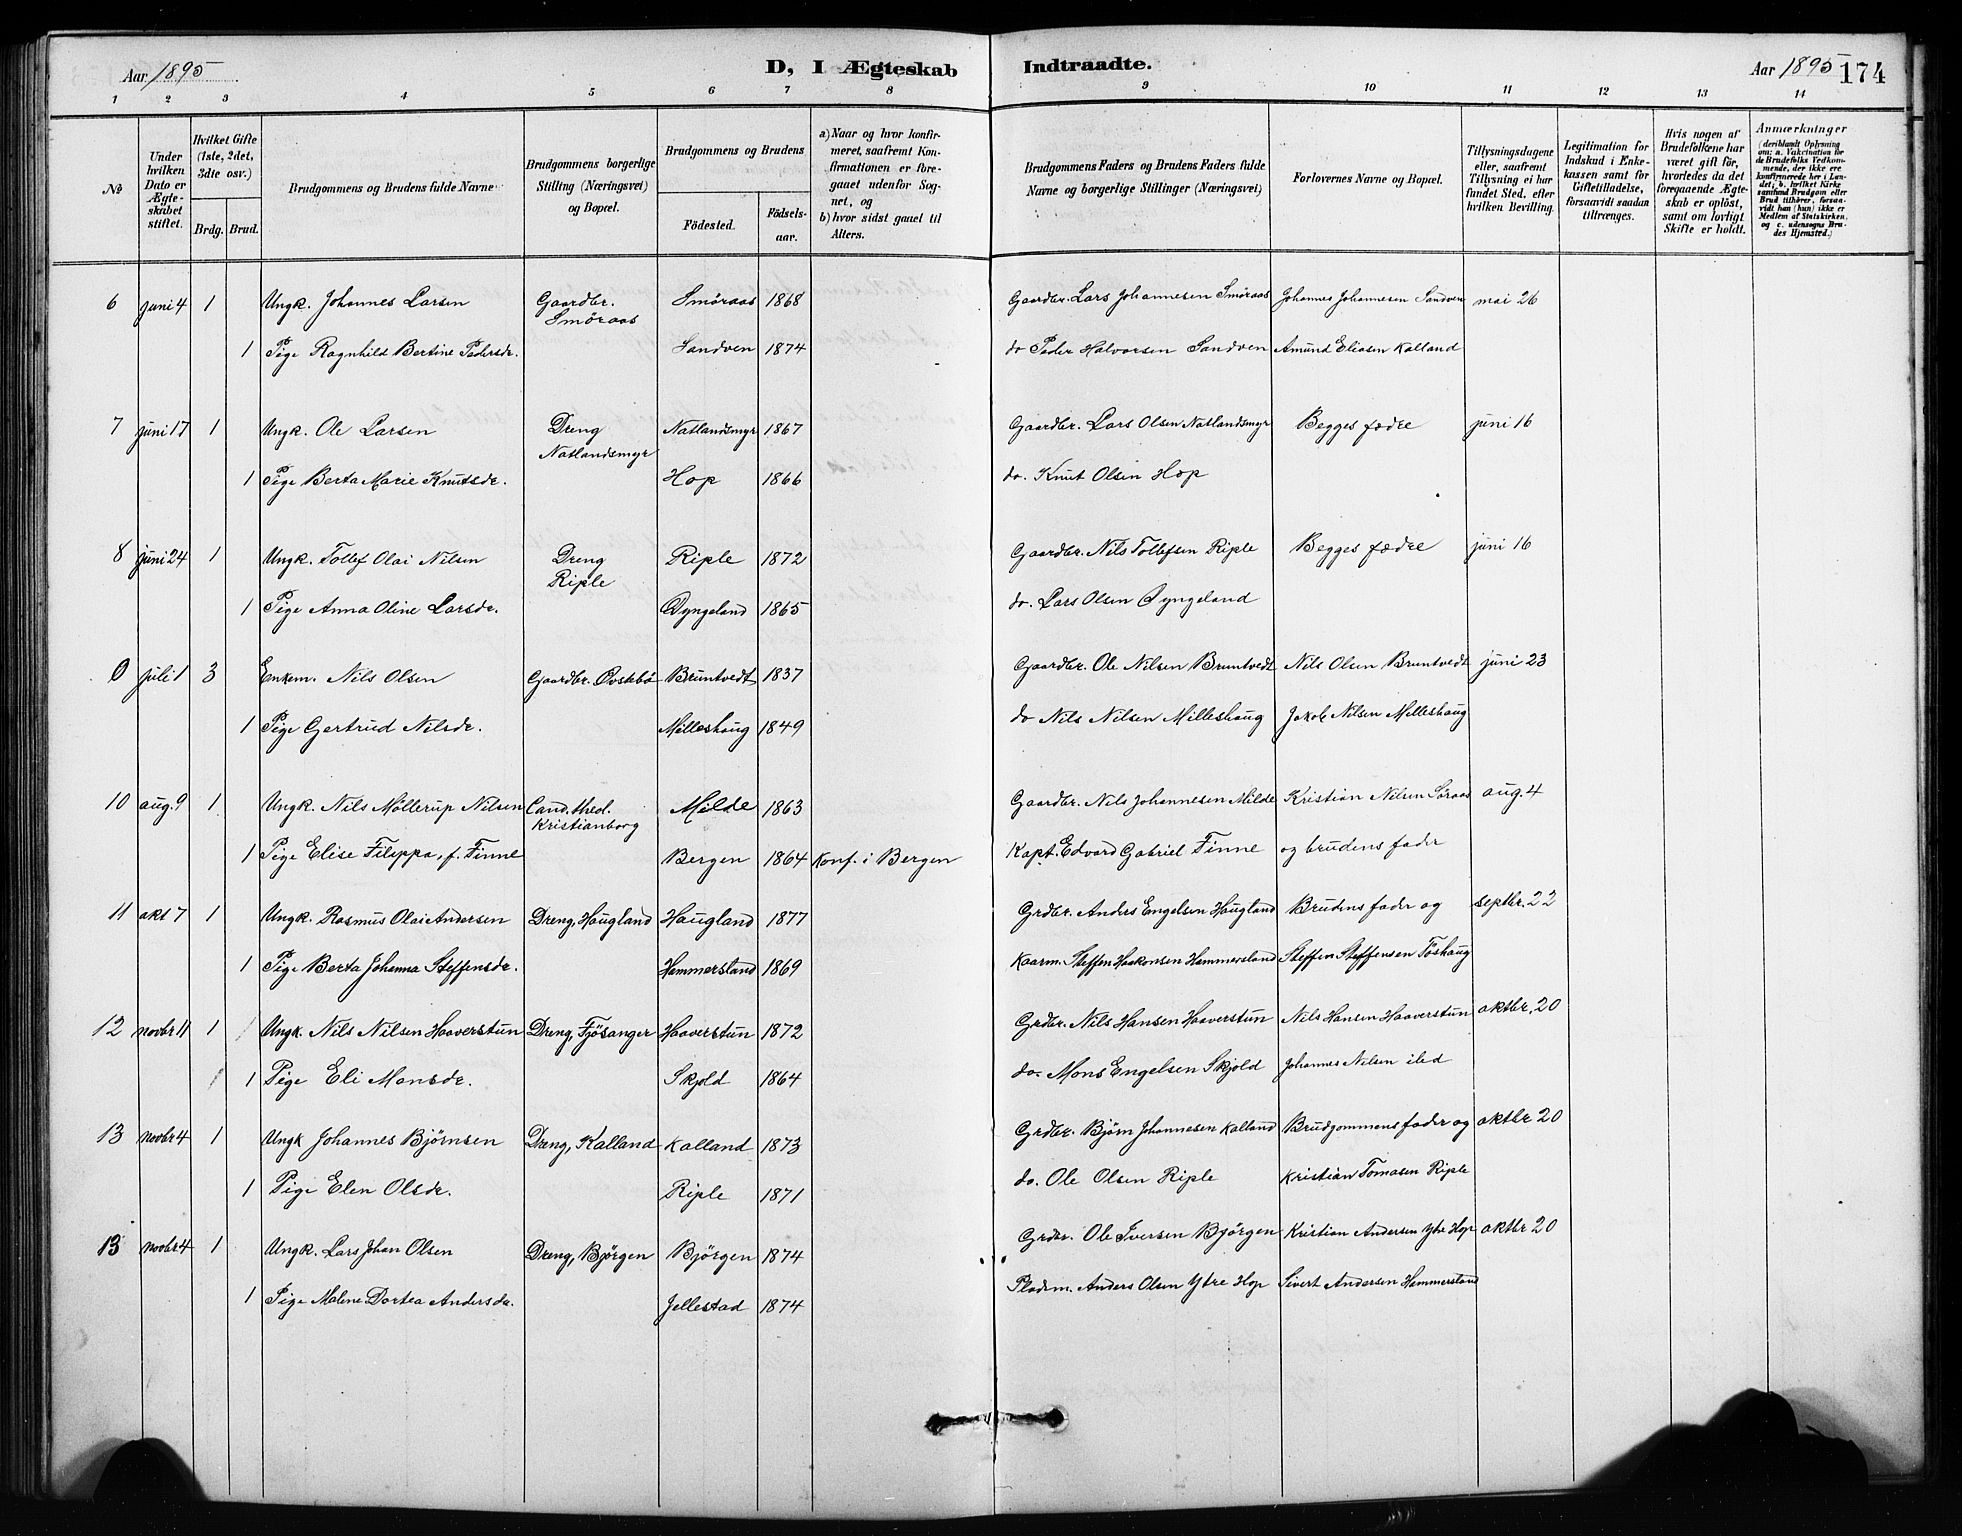 Aar 1895
D, I Ægteskab Indtraadte.
Aar 1895
174
1 2 3 4 5 6 7 8 9 10 11 12 13 14
No
Under hvilken Dato er Ægteskabet stiftet.
Hvilket Gifte (1ste, 2det, 3die osv.)
Brdg. Brud.
Brudgommens og Brudens fulde Navne
Brudgommens borgerlige Stilling (Næringsvei) og Bopæl.
Brudgommens og Brudens
Fødested.
Fødselsaar.
a) Naar og hvor konfirmeret, saafremt Konfirmationen er foregaaet udenfor Sognet, og
b) hvor sidst gaaet til Alters.
Brudgommens Faders og Brudens Faders fulde Navne og borgerlige Stillinger (Næringsvei)
Forlovernes Navne og Bopæl.
Tillysningsdagene eller, saafremt Tillysning ei har fundet Sted, efter hvilken Bevilling.
Legitimation for Indskud i Enkekassen samt for Giftetilladelse, forsaavidt saadan tiltrænges.
Hvis nogen af Brudefolkene har været gift før, hvorledes da det foregaaende Ægteskab er opløst, samt om lovligt Skifte er holdt.
Anmærkninger (deriblandt Oplysning om: a. Vakcination for de Brudefolks Vedkommende, der ikke ere konfirmerede her i Landet; b. hvilket Kirkesamfund Brudgom eller Brud tilhører, forsaavidt han (hun) ikke er Medlem af Statskirken, og c. udensogns Brudes Hjemsted.)
6 juni 4 1 Ungk. Johannes Larsen Gaardbr. Smöraas Smöraas 1868 Gaardbr. Lars Johannesen Smöraas Johannes Johannesen Sandven mai 26
1 Pige Ragnhild Bertine Pedersdr. Sandven 1874 do Peder Halvorsen Sandven Amund Eliasen Kalland
7 juni 17 1 Ungk. Ole Larsen Dreng Natlandsmyr Natlandsmyr 1867 Gaardbr. Lars Olsen Natlandsmyr Begges fædre juni 16
1 Pige Berta Marie Knutsdr. Hop 1866 do. Knut Olsen Hop
8 juni 24 1 Ungk. Tollef Olai Nilsen Dreng Riple Riple 1872 Gaardbr. Nils Tollefsen Riple Begges fædre juni 16
1 Pige Anna Oline Larsdr. Dyngeland 1865 do. Lars Olsen Dyngeland
9 juli 1 3 Enkem. Nils Olsen Gaardbr. Øvstebö Bruntvedt 1837 Gaardbr. Ole Nilsen Bruntvedt Nils Olsen Bruntvedt juni 23
1 Pige Gertrud Nilsdr. Milleshaug 1849 do Nils Nilsen Milleshaug Jakob Nilsen Milleshaug
10 aug. 9 1 Ungk. Nils Møllerup Nilsen Cand. theol. Kristianborg Milde 1863 Gaardbr. Nils Johannesen Milde Kristian Nilsen Søraas aug. 4
1 Pige Elise Filippa, f. Finne Bergen 1864 Konf. i Bergen Kapt. Edvard Gabriel Finne og brudens fader
11 okt 7 1 Ungk. Rasmus Olai Andersen Dreng, Haugland Haugland 1877 Grdbr. Anders Engelsen Haugland Brudens fader og septbr. 22
1 Pige Berta Johanna Steffensdr. Hammersland 1869 Kaarm. Steffen Haakonsen Hammersland Steffen Steffensen Töshaug
12 novbr 11 1 Ungk. Nils Nilsen Haaverstun Dreng, Fjösanger Haaverstun 1872 Grdbr. Nils Hansen Haaverstun Nils Hansen Haaverstun oktbr. 20
1 Pige Eli Monsdr. Skjold 1864 do. Mons Engelsen Skjold Johannes Nilsen ibd
13 novbr 4 1 Ungk Johannes Bjørnsen Dreng, Kalland Kalland 1873 Grdbr. Bjørn Johannesen Kalland Brudgommens fader og oktbr 20
1 Pige Elen Olsdr. Riple 1871 do. Ole Olsen Riple Kristian Tomasen Riple
13 novbr 4 1 Ungk. Lars Johan Olsen Dreng, Bjørgen Bjørgen 1874 Grdbr. Ole Iversen Bjørgen Kristian Andersen Ytre Hop oktbr 20
1 Pige Malene Dortea Andersdr. Jellestad 1874 Pladsm. Anders Olsen Ytre Hop Sivert Andersen Hammersland